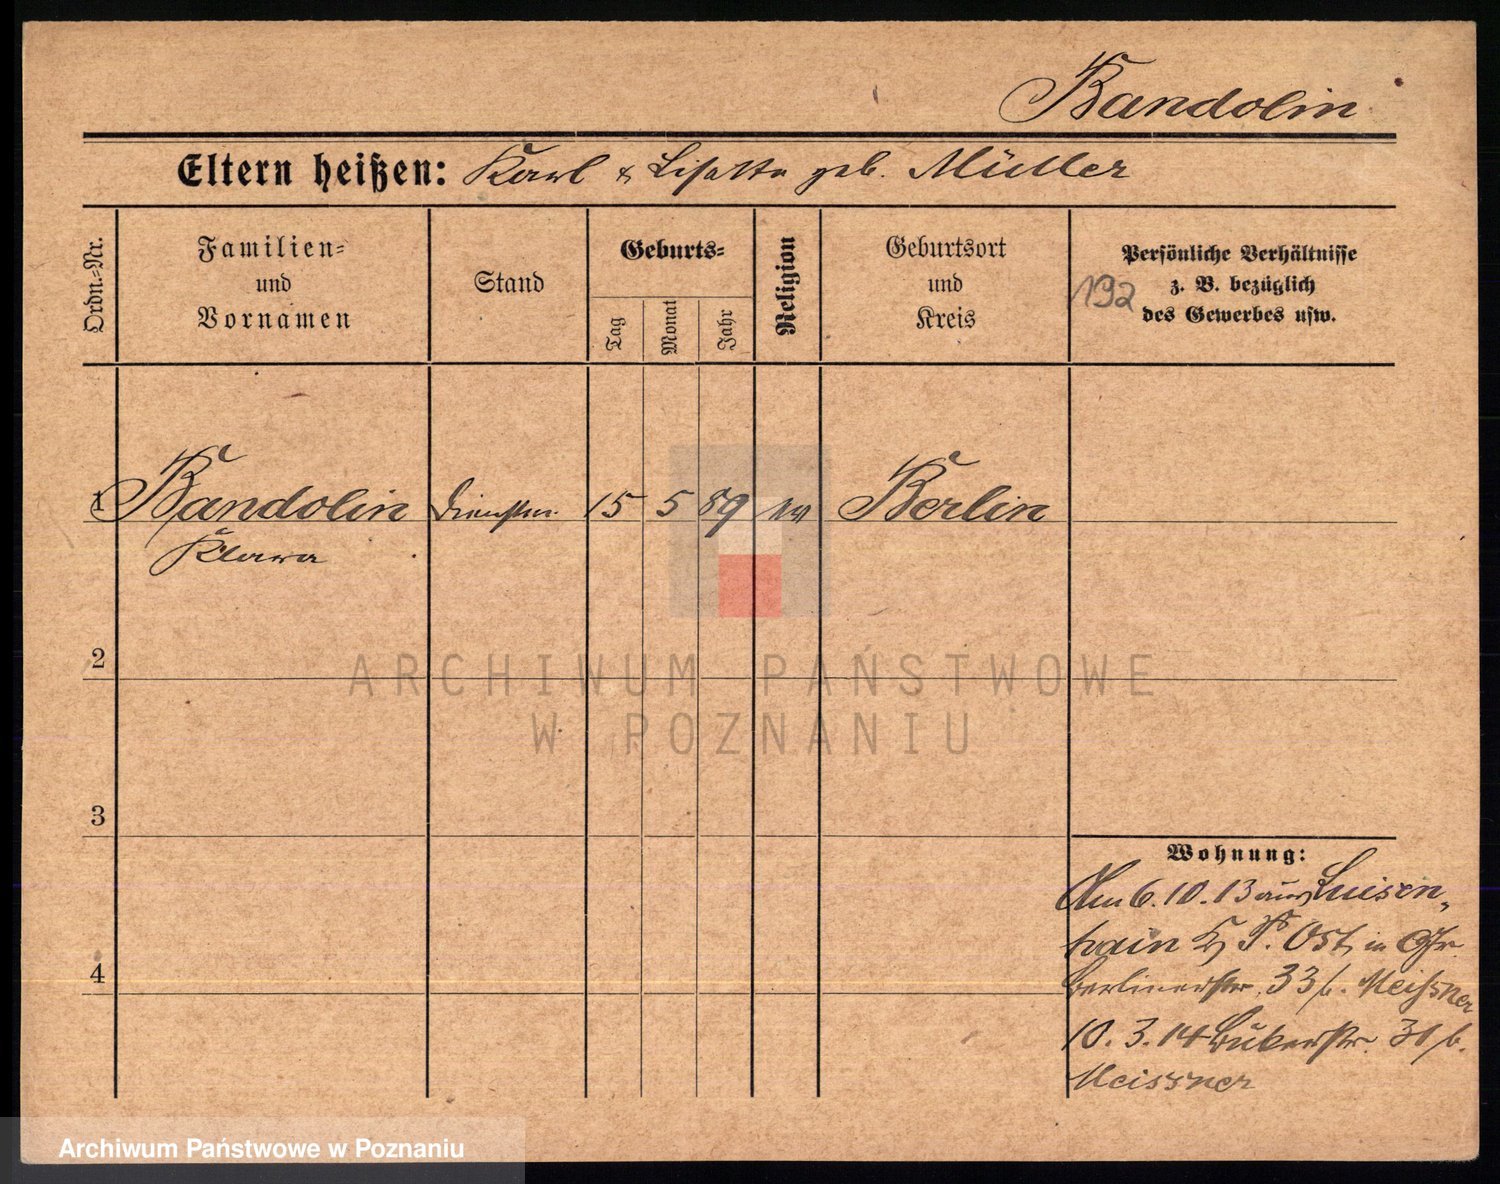 Bandolin
Eltern heißen: Karl & Lisette geb. Müller
Ordn.-Nr.
Familien-
und
Vornamen
Stand
Geburts-
Tag
Monat
Jahr
Religion
Geburtsort
und
Kreis
Persönliche Verhältnisse
z. B. bezüglich
des Gewerbes usw.
192
1 Bandolin 15 5 89 ev Berlin
Klara
2
ARCHIWUM PAŃSTWOWE
W POZNANIU
3
Wohnung:
Am 6.10.13 aus Luisen-
hain Ps. Ost, in
Berlinerstr. 33 b. Meissner
10.3.14 31 b.
Meissner
4
Archiwum Państwowe w Poznaniu